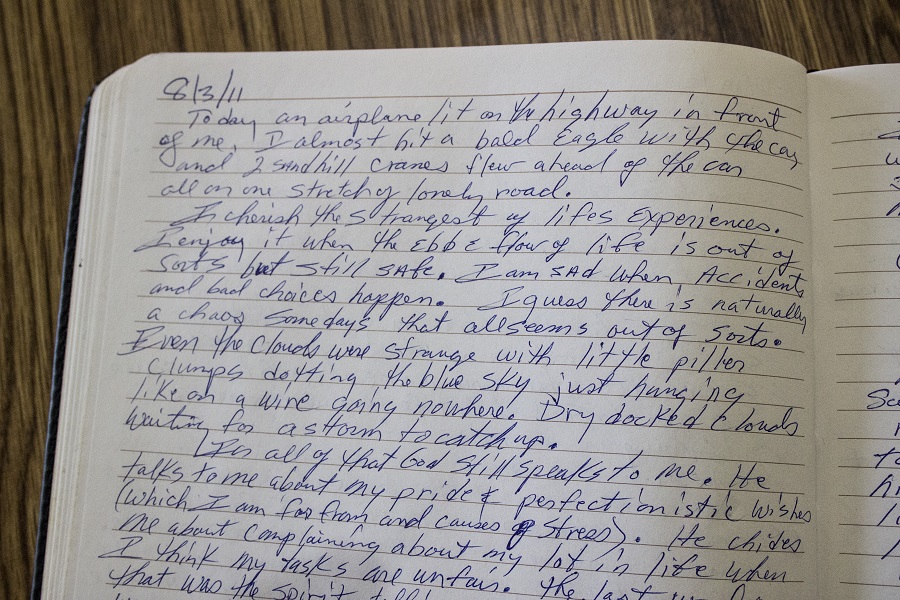 8/3/11
Today an airplane lit on the highway in front
of me, I almost hit a bald Eagle with the car
and 2 sandhill cranes flew ahead of the car
all on one stretch of lonely road.
I cherish the strangest of lifes experiences.
I enjoy it when the ebb & flow of life is out of
sorts but still safe. I am sad when Accidents
and bad choices happen. I guess there is naturally
a chaos some days that all seems out of sorts.
Even the clouds were strange with little piller
clumps dotting the blue sky just hanging
like on a wire going nowhere. Dry docked clouds
waiting for a storm to catch up.
all of that God still speaks to me. He
talks to me about my pride & perfectionistic wishes
(which I am far from and causes stress). He chides
me about complaining about my lot in life when
I think my tasks are unfair. The last
that was the spirit
Sc